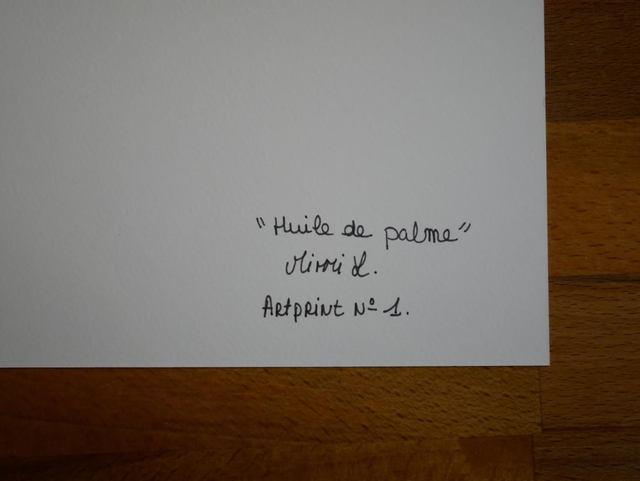 "Huile de palme"
Artprint Nº 1.